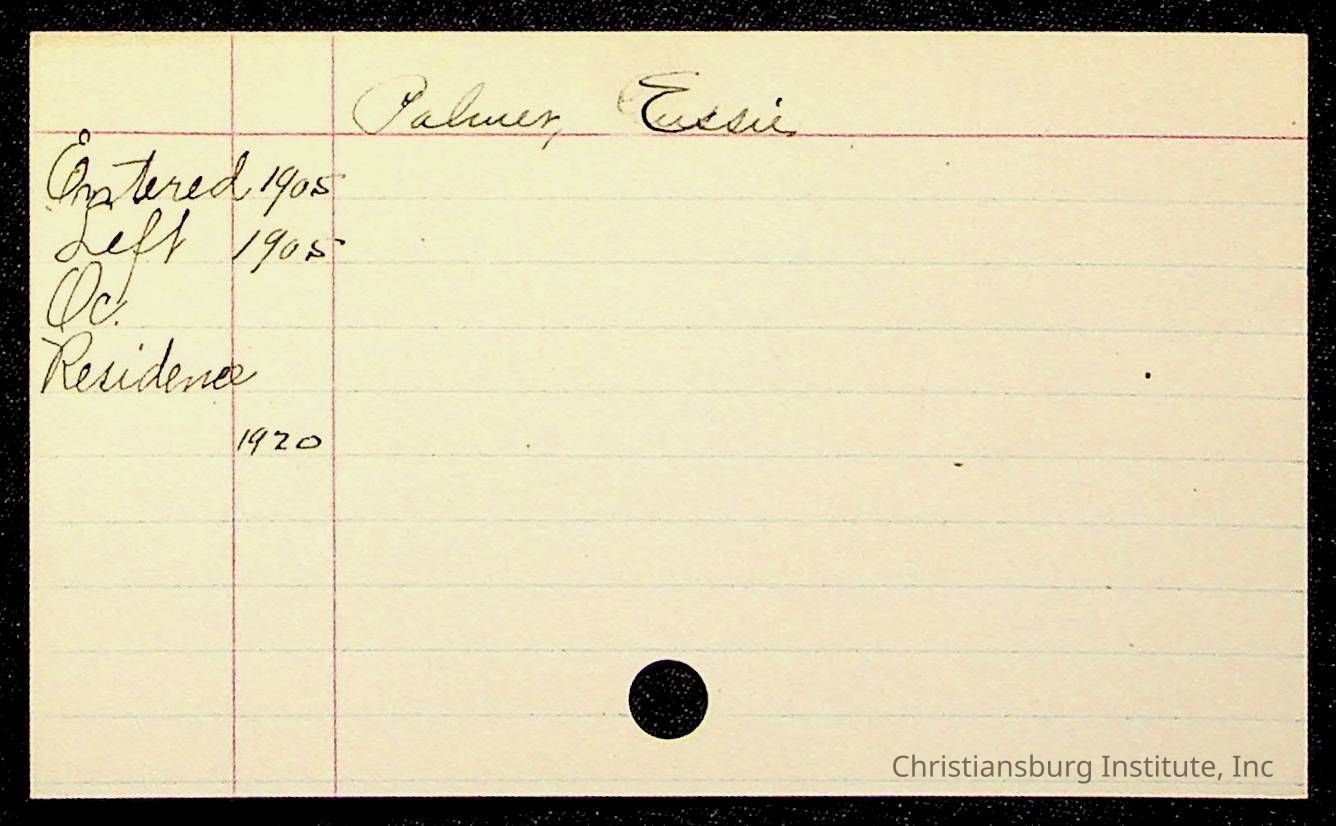 Palmer, Eussie
Entered 1905
Left 1905
Oc.
Residence
1920
Christiansburg Institute, Inc